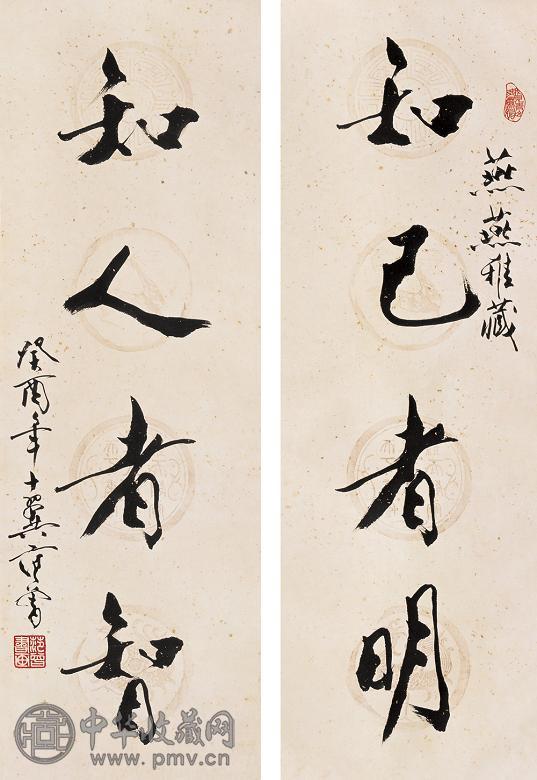 燕燕雅藏
知己者明
知人者智
癸酉年十翼范曾
中华收藏网
www.pmv.cn